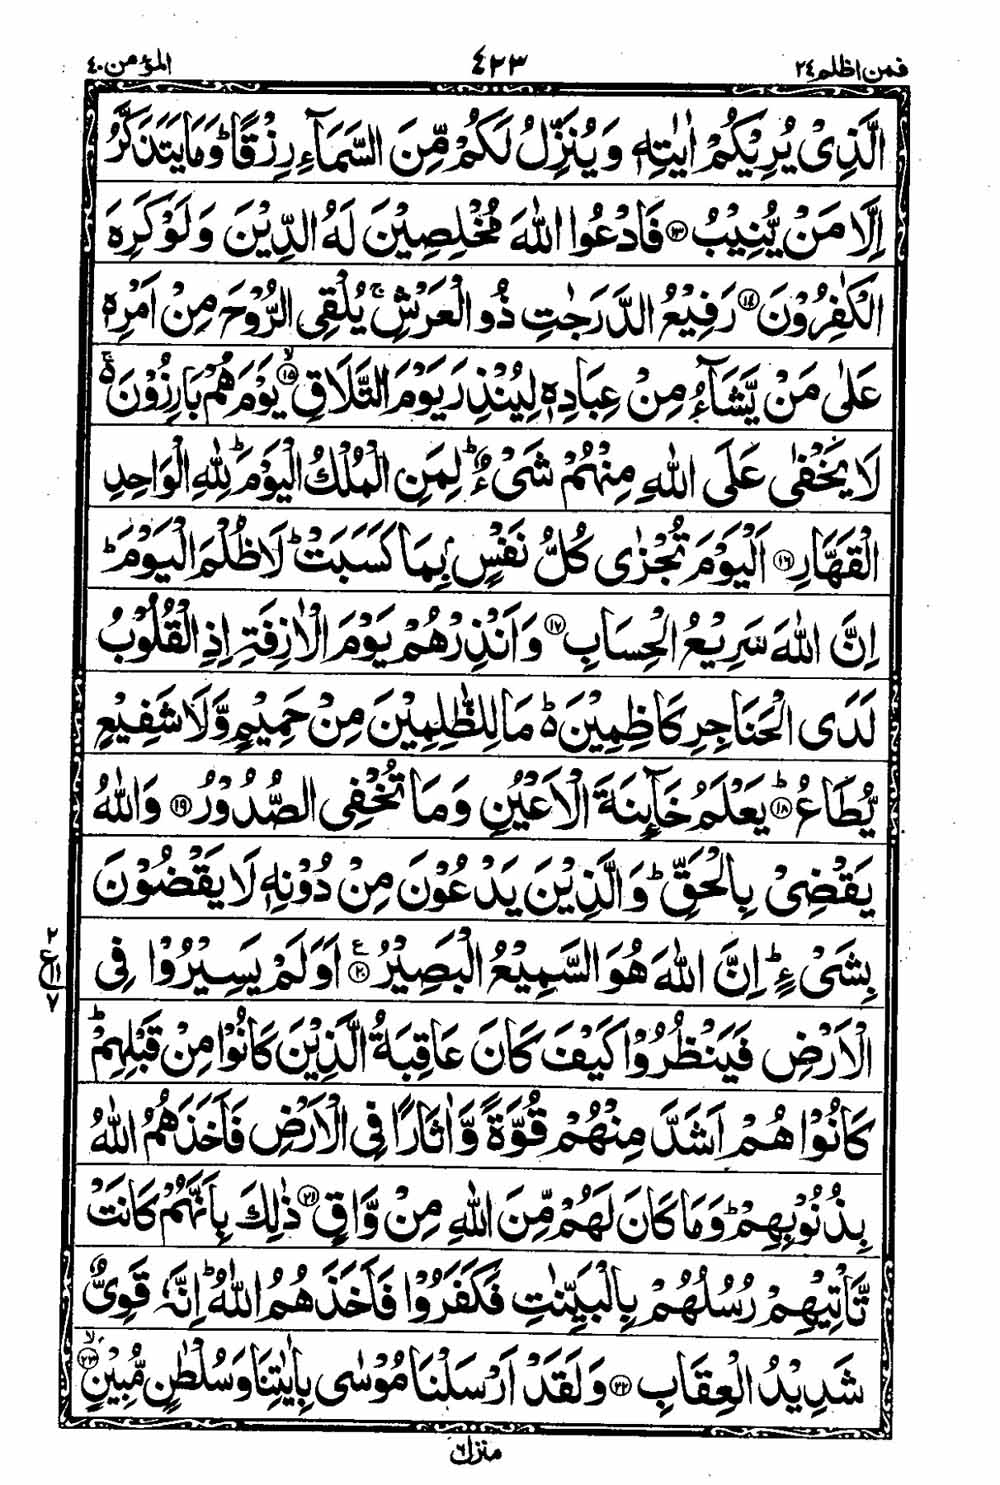 المؤمن ٤٠ ٤٢٣ فمن اظلم ٢٤
الَّذِىْ يُرِيْكُمْ اٰيٰتِهٖ وَيُنَزِّلُ لَكُمْ مِّنَ السَّمَآءِ رِزْقًا ؕ وَمَا يَتَذَكَّرُ
اِلَّا مَنْ يُّنِيْبُ ﴿۱۳﴾ فَادْعُوا اللّٰهَ مُخْلِصِيْنَ لَهُ الدِّيْنَ وَلَوْ كَرِهَ
الْكٰفِرُوْنَ ﴿۱۴﴾ رَفِيْعُ الدَّرَجٰتِ ذُو الْعَرْشِ ۚ يُلْقِى الرُّوْحَ مِنْ اَمْرِهٖ
عَلٰى مَنْ يَّشَآءُ مِنْ عِبَادِهٖ لِيُنْذِرَ يَوْمَ التَّلَاقِ ﴿۱۵﴾ۙ يَوْمَ هُمْ بَارِزُوْنَ ۚ۬
لَا يَخْفٰى عَلَى اللّٰهِ مِنْهُمْ شَىْءٌ ؕ لِمَنِ الْمُلْكُ الْيَوْمَ ؕ لِلّٰهِ الْوَاحِدِ
الْقَهَّارِ ﴿۱۶﴾ اَلْيَوْمَ تُجْزٰى كُلُّ نَفْسٍۭ بِمَا كَسَبَتْ ؕ لَا ظُلْمَ الْيَوْمَ ؕ
اِنَّ اللّٰهَ سَرِيْعُ الْحِسَابِ ﴿۱۷﴾ وَاَنْذِرْهُمْ يَوْمَ الْاٰزِفَةِ اِذِ الْقُلُوْبُ
لَدَى الْحَنَاجِرِ كَاظِمِيْنَ ؕ۬ مَا لِلظّٰلِمِيْنَ مِنْ حَمِيْمٍ وَّلَا شَفِيْعٍ
يُّطَاعُ ﴿۱۸﴾ؕ يَعْلَمُ خَآئِنَةَ الْاَعْيُنِ وَمَا تُخْفِى الصُّدُوْرُ ﴿۱۹﴾ وَاللّٰهُ
يَقْضِىْ بِالْحَقِّ ؕ وَالَّذِيْنَ يَدْعُوْنَ مِنْ دُوْنِهٖ لَا يَقْضُوْنَ
بِشَىْءٍ ؕ اِنَّ اللّٰهَ هُوَ السَّمِيْعُ الْبَصِيْرُ ﴿۲۰﴾ع اَوَلَمْ يَسِيْرُوْا فِى
٢ ع ١١ ٧
الْاَرْضِ فَيَنْظُرُوْا كَيْفَ كَانَ عَاقِبَةُ الَّذِيْنَ كَانُوْا مِنْ قَبْلِهِمْ ؕ
كَانُوْا هُمْ اَشَدَّ مِنْهُمْ قُوَّةً وَّاٰثَارًا فِى الْاَرْضِ فَاَخَذَهُمُ اللّٰهُ
بِذُنُوْبِهِمْ ؕ وَمَا كَانَ لَهُمْ مِّنَ اللّٰهِ مِنْ وَّاقٍ ﴿۲۱﴾ ذٰلِكَ بِاَنَّهُمْ كَانَتْ
تَّاْتِيْهِمْ رُسُلُهُمْ بِالْبَيِّنٰتِ فَكَفَرُوْا فَاَخَذَهُمُ اللّٰهُ ؕ اِنَّهٗ قَوِىٌّ
شَدِيْدُ الْعِقَابِ ﴿۲۲﴾ وَلَقَدْ اَرْسَلْنَا مُوْسٰى بِاٰيٰتِنَا وَسُلْطٰنٍ مُّبِيْنٍ ﴿۲۳﴾ۙ
منزل ٦